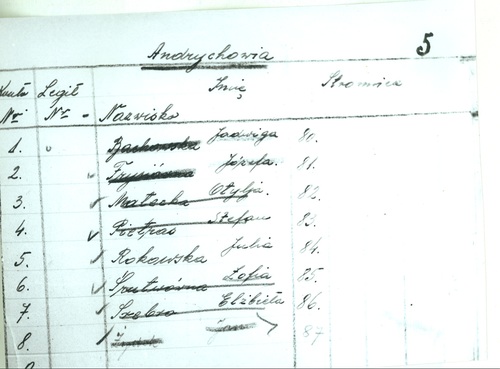 Andrychowia 5
Konto Legit. Imię Stronica
Nr. Nr. Nazwisko
1. Bachowska Jadwiga 80.
2. Józefa 81.
3. Małecka Otylja 82.
4. Pietras Stefan 83.
5. Rokowska Julia 84.
6. Zofia 85.
7. Szelzo Elżbieta 86.
8. Jan 87